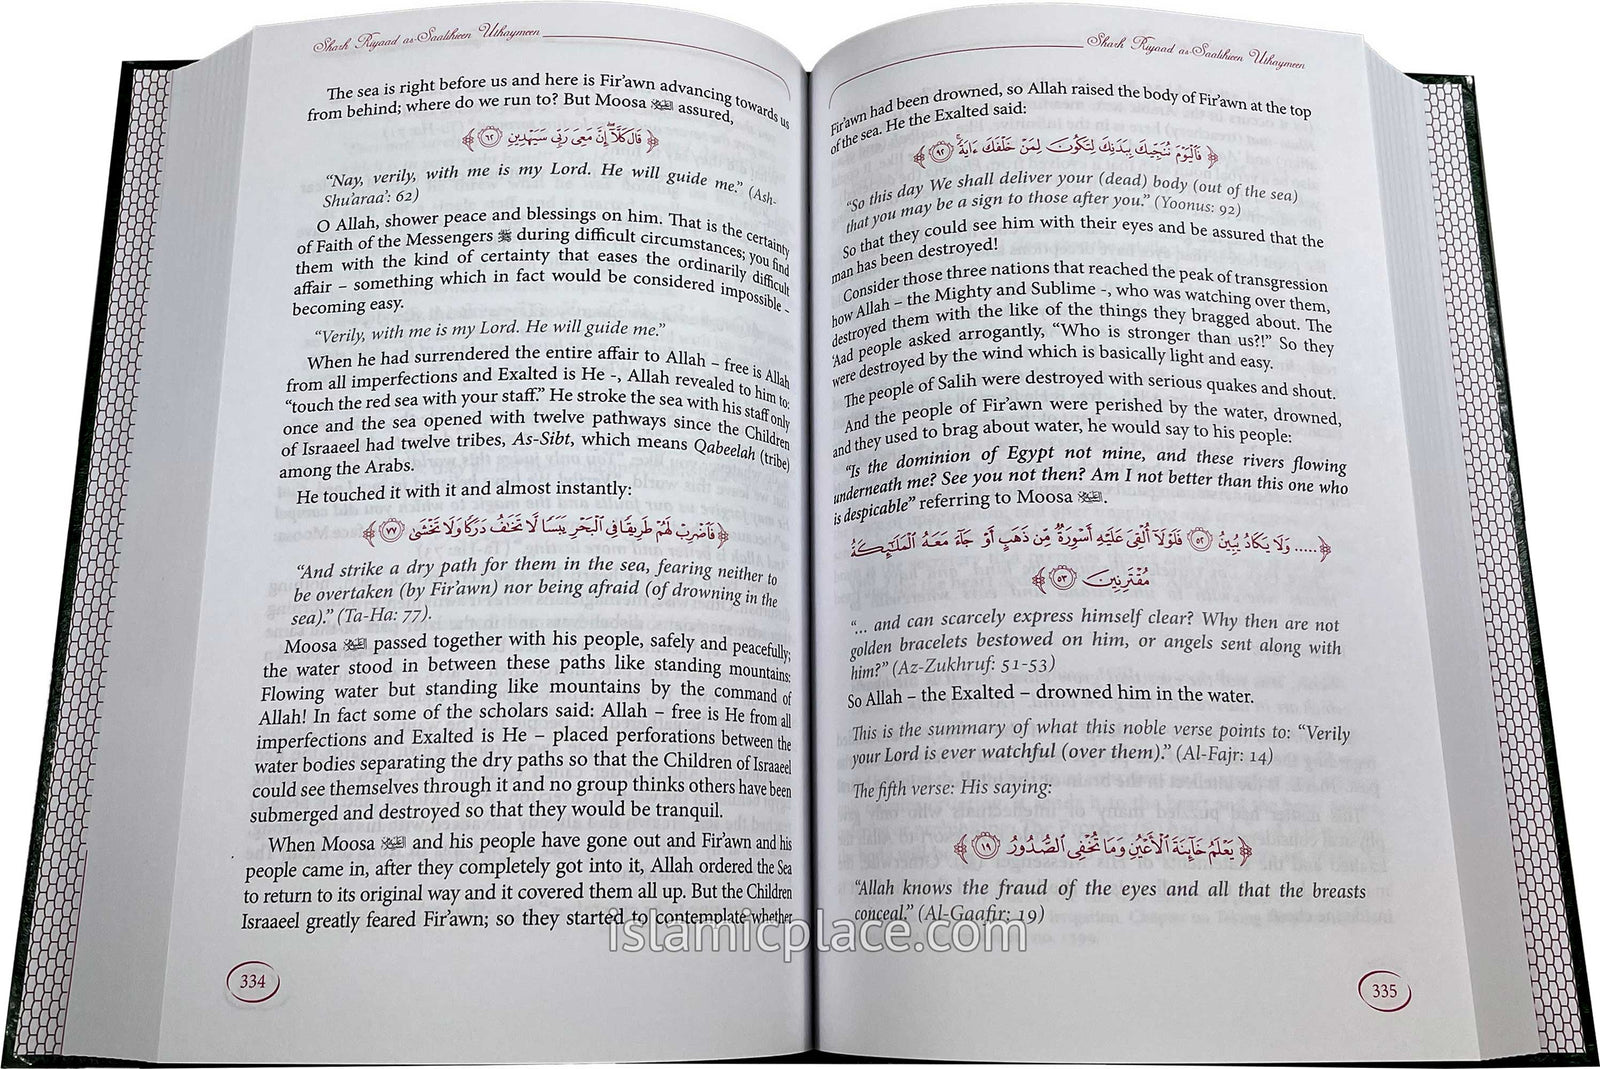 Sharh Riyaad as-Saaliheen Uthaymeen
The sea is right before us and here is Fir'awn advancing towards us
from behind; where do we run to? But Moosa assured,
﴿ قَالَ كَلَّا إِنَّ مَعِيَ رَبِّي سَيَهْدِينِ ٦٢ ﴾
"Nay, verily, with me is my Lord. He will guide me." (Ash-
Shu'araa': 62)
O Allah, shower peace and blessings on him. That is the certainty
of Faith of the Messengers ﷺ during difficult circumstances; you find
them with the kind of certainty that eases the ordinarily difficult
affair – something which in fact would be considered impossible -
becoming easy.
"Verily, with me is my Lord. He will guide me."
When he had surrendered the entire affair to Allah – free is Allah
from all imperfections and Exalted is He -, Allah revealed to him to:
"touch the red sea with your staff." He stroke the sea with his staff only
once and the sea opened with twelve pathways since the Children
of Israaeel had twelve tribes, As-Sibt, which means Qabeelah (tribe)
among the Arabs.
He touched it with it and almost instantly:
﴿ فَاضْرِبْ لَهُمْ طَرِيقًا فِي الْبَحْرِ يَبَسًا لَّا تَخَافُ دَرَكًا وَلَا تَخْشَىٰ ٧٧ ﴾
"And strike a dry path for them in the sea, fearing neither to
be overtaken (by Fir'awn) nor being afraid (of drowning in the
sea)." (Ta-Ha: 77).
Moosa passed together with his people, safely and peacefully;
the water stood in between these paths like standing mountains:
Flowing water but standing like mountains by the command of
Allah! In fact some of the scholars said: Allah – free is He from all
imperfections and Exalted is He – placed perforations between the
water bodies separating the dry paths so that the Children of Israaeel
could see themselves through it and no group thinks others have been
submerged and destroyed so that they would be tranquil.
When Moosa and his people have gone out and Fir'awn and his
people came in, after they completely got into it, Allah ordered the Sea
to return to its original way and it covered them all up. But the Children
Israaeel greatly feared Fir'awn; so they started to contemplate whether
334
Sharh Riyaad as-Saaliheen Uthaymeen
Fir'awn had been drowned, so Allah raised the body of Fir'awn at the top
of the sea. He the Exalted said:
﴿ فَالْيَوْمَ نُنَجِّيكَ بِبَدَنِكَ لِتَكُونَ لِمَنْ خَلْفَكَ ءَايَةً ٩٢ ﴾
"So this day We shall deliver your (dead) body (out of the sea)
that you may be a sign to those after you." (Yoonus: 92)
So that they could see him with their eyes and be assured that the
man has been destroyed!
Consider those three nations that reached the peak of transgression
how Allah – the Mighty and Sublime -, who was watching over them,
destroyed them with the like of the things they bragged about. The
'Aad people asked arrogantly, "Who is stronger than us?!" So they
were destroyed by the wind which is basically light and easy.
The people of Salih were destroyed with serious quakes and shout.
And the people of Fir'awn were perished by the water, drowned,
and they used to brag about water, he would say to his people:
"Is the dominion of Egypt not mine, and these rivers flowing
underneath me? See you not then? Am I not better than this one who
is despicable" referring to Moosa .
﴿ ..... وَلَا يَكَادُ يُبِينُ ٥٢ فَلَوْلَا أُلْقِيَ عَلَيْهِ أَسْوِرَةٌ مِّن ذَهَبٍ أَوْ جَاءَ مَعَهُ الْمَلَائِكَةُ
مُقْتَرِنِينَ ٥٣ ﴾
"... and can scarcely express himself clear? Why then are not
golden bracelets bestowed on him, or angels sent along with
him?" (Az-Zukhruf: 51-53)
So Allah – the Exalted – drowned him in the water.
This is the summary of what this noble verse points to: "Verily
your Lord is ever watchful (over them)." (Al-Fajr: 14)
The fifth verse: His saying:
﴿ يَعْلَمُ خَائِنَةَ الْأَعْيُنِ وَمَا تُخْفِي الصُّدُورُ ١٩ ﴾
"Allah knows the fraud of the eyes and all that the breasts
conceal." (Al-Gaafir: 19)
335
islamicplace.com